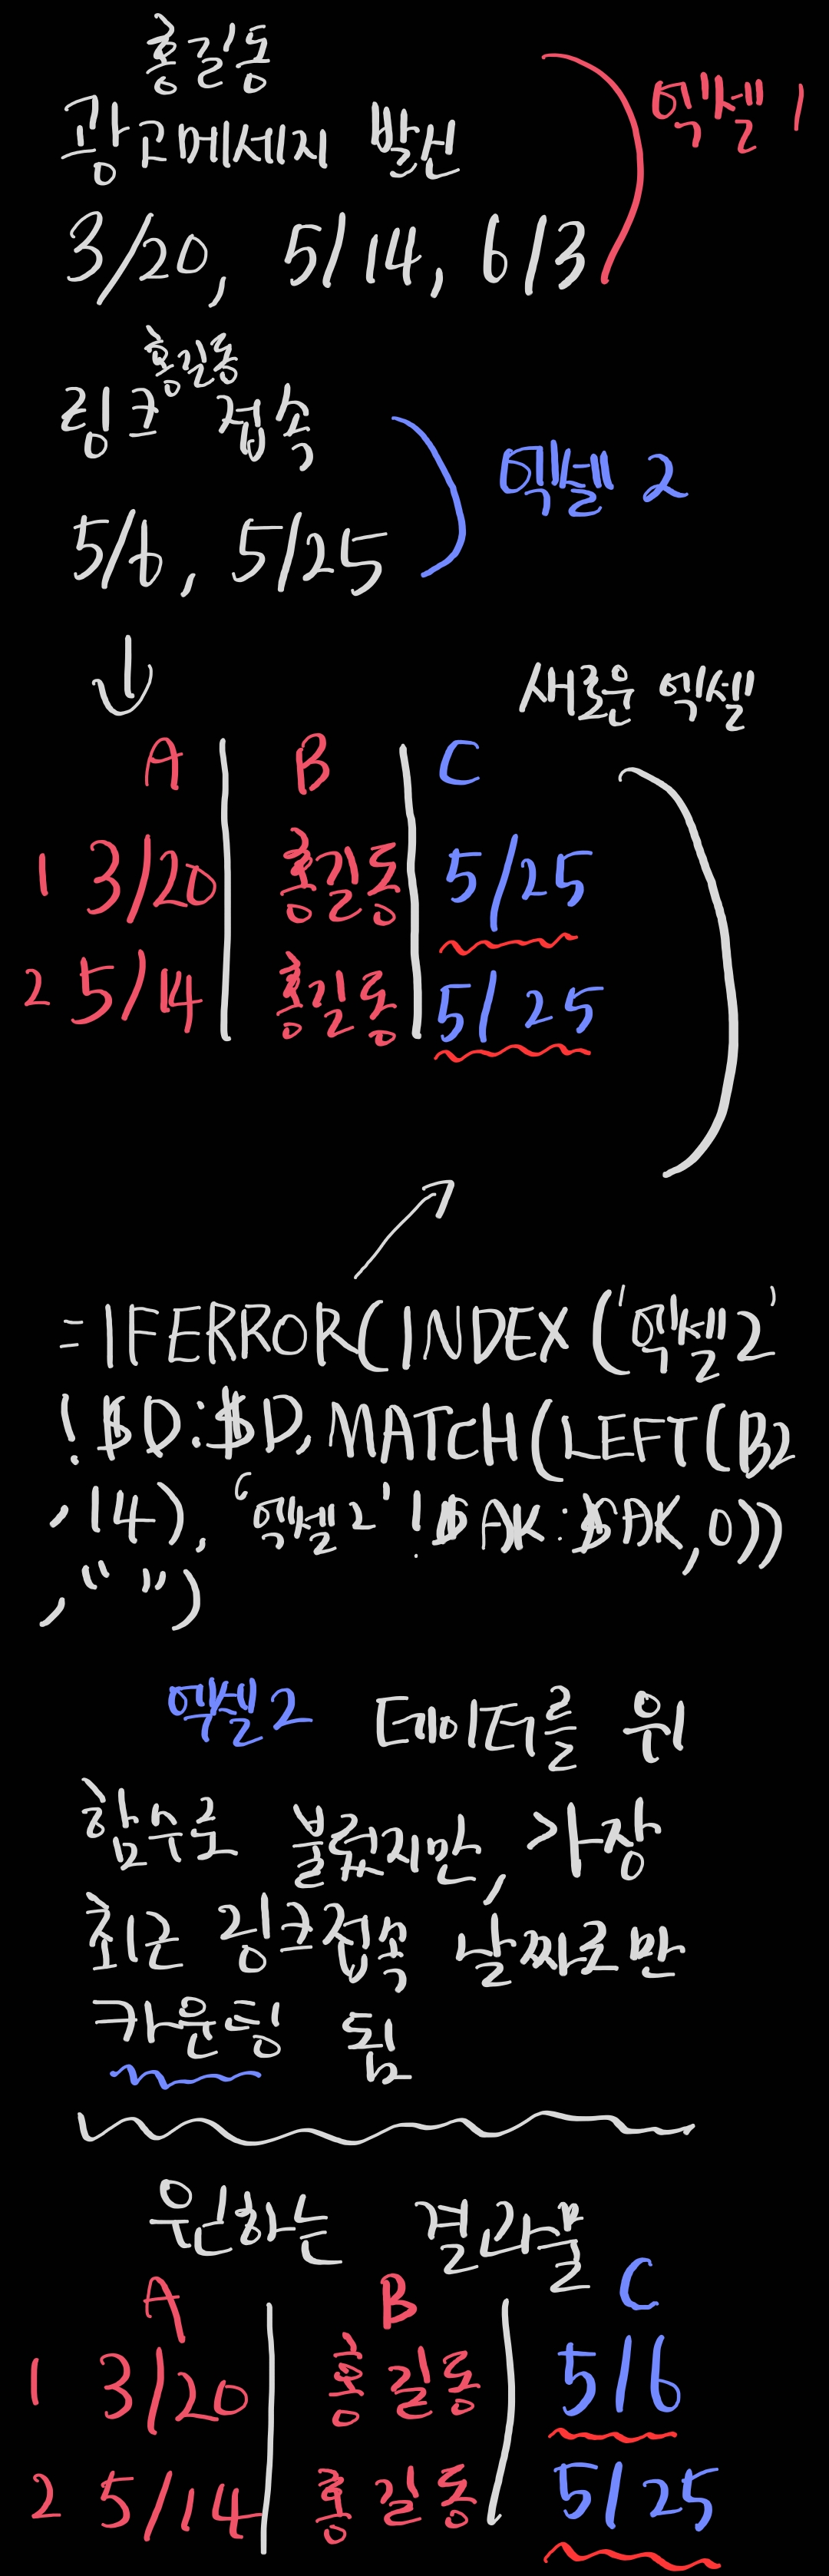 홍길동
광고메세지 발신
엑셀 1
3/20, 5/14, 6/3
홍길동
링크 접속
엑셀 2
5/6, 5/25
새로운 엑셀
A B C
1 3/20 홍길동 5/25
2 5/14 홍길동 5/25
=IFERROR(INDEX('엑셀2'
!$D:$D,MATCH(LEFT(B2
,14),'엑셀2'!$AK:$AK,0))
,"")
엑셀2 데이터를 위
함수로 불렀지만, 가장
최근 링크접속 날짜로만
카운팅 됨
원하는 결과물
A B C
1 3/20 홍길동 5/6
2 5/14 홍길동 5/25